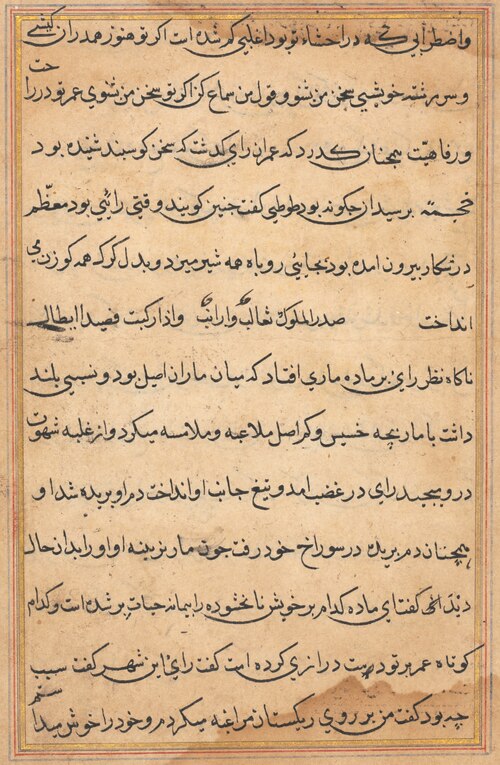 واضطرابی که در احشاء تو بود اغلبی کم شده است اکر تو هنوز همدران کیشے
وسر رشته خویشی سخن من بشنو و قول من سماع کن اکر تو سخن من شنوی عمر تو در راحت
ورفاهیت همچنان کذرد که عمر ان رای کذشت که سخن کوسبند شنیده بود
خجسته برسید ان جکونه بود طوطی کفت جنین کویند وقتی رائی بود معظّم
در شکار بیرون امده بود بجایئی روباه همه شیر میزد و بدل کرک همه کوزن می
انداخت صدر الملوک ثعالب وارانب واذا رکبت فصیدا ابطالے
ناکاه نظر رای بر ماده ماری افتاد که میان ماران اصیل بود و نسبی بلند
داشت با ماربچه خسیس و کم اصل ملاعبه و ملامسه میکرد و از غلبه شهوت
در و میپجید رای در غضب امد و تیغ جانب او انداخت دم او بریده شد او
همچنان دم بریده در سوراخ خود رفت جون مار نرینه او او را بدان حال
دید کفت ای ماده کدام بر خویش نابخشوده را پیمانه حیات پر شده است و کدام
کوتاه عمر بر تو دست درازی کرده است کفت رای این شهر کفت سبب
چه بود کفت من بر روی ریکستان مراغه میکردم و خود را خوش میداشتم